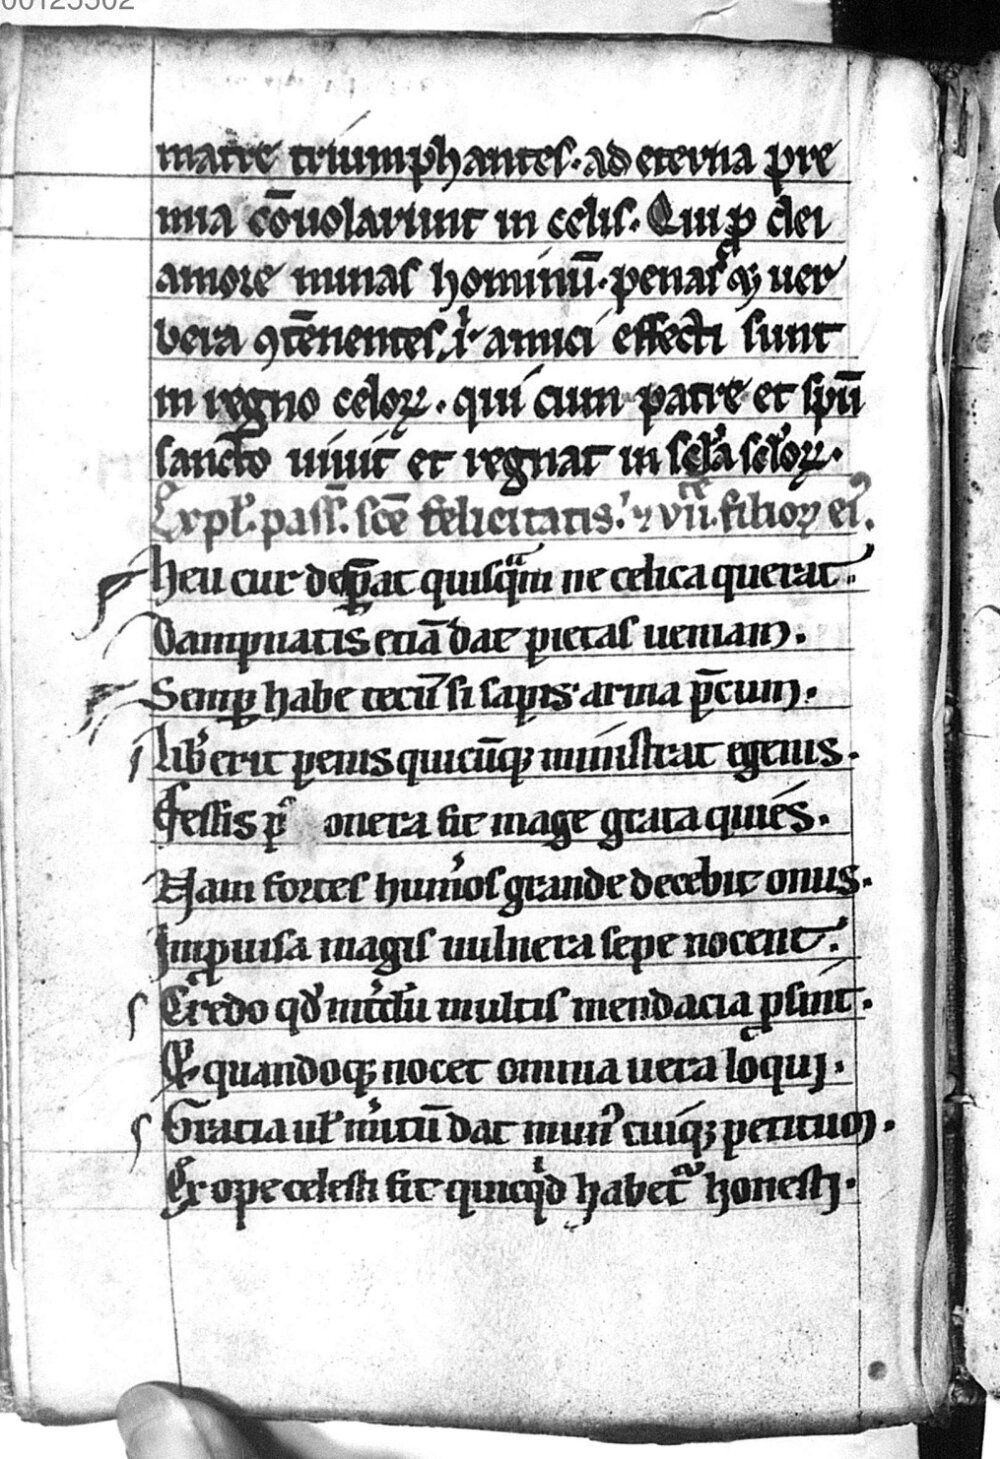 00125502
matre triumphantes. ad eterna pre
mia co̅uolarunt in celis. Qui ꝓ dei
amore minas hominu̅. penasq; uer
bera ꝯte̅nentes, amici effecti sunt
in regno celoꝝ. qui cum patre et spu̅
sancto uiuit et regnat in scl̕a scl̕oꝝ.
Expl̕. pass̅. sce̅ felicitatis. ⁊ vii. filioꝝ ei᾿.
Heu cur desꝑat quisqᵃm ne celica querat.
Dampnatis etia̅ dat pietas ueniam.
Semꝑ habe tecu̅ si sapis arma p̅cum.
Lib̕ erit penis quicu̅q; ministrat egenis.
Fessis p᾿ onera fit mage grata quies.
Nam fortes hum̕os grande decebit onus.
Inꝓuisa magis uulnera sepe nocent.
Credo qd̕ multis mendacia ꝓsint.
Et quandoq; nocet omnia uera loqui.
Gracia ul̕ m̕itu̅ dat mun᾿ cuiq; petitum.
Ex ope celesti fit quicqⁱd habet᾿ honesti.